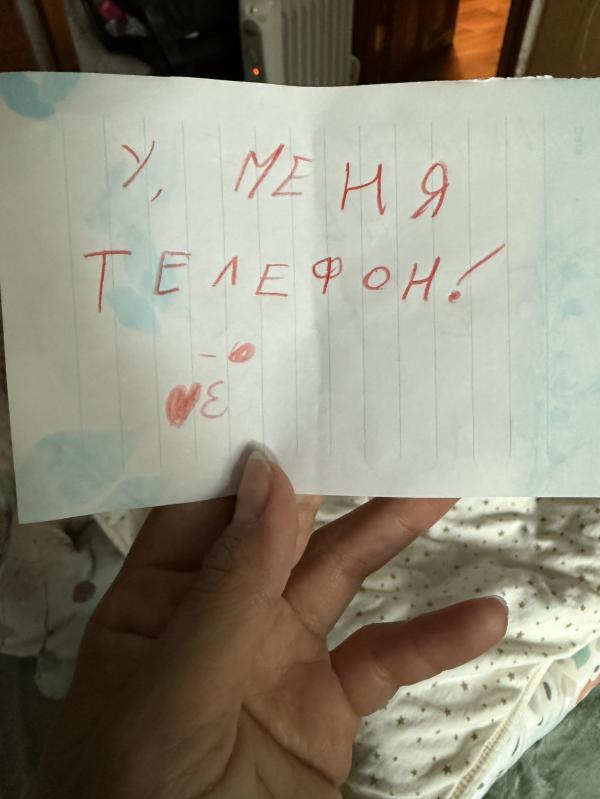 У, МЕНЯ
ТЕЛЕФОН!